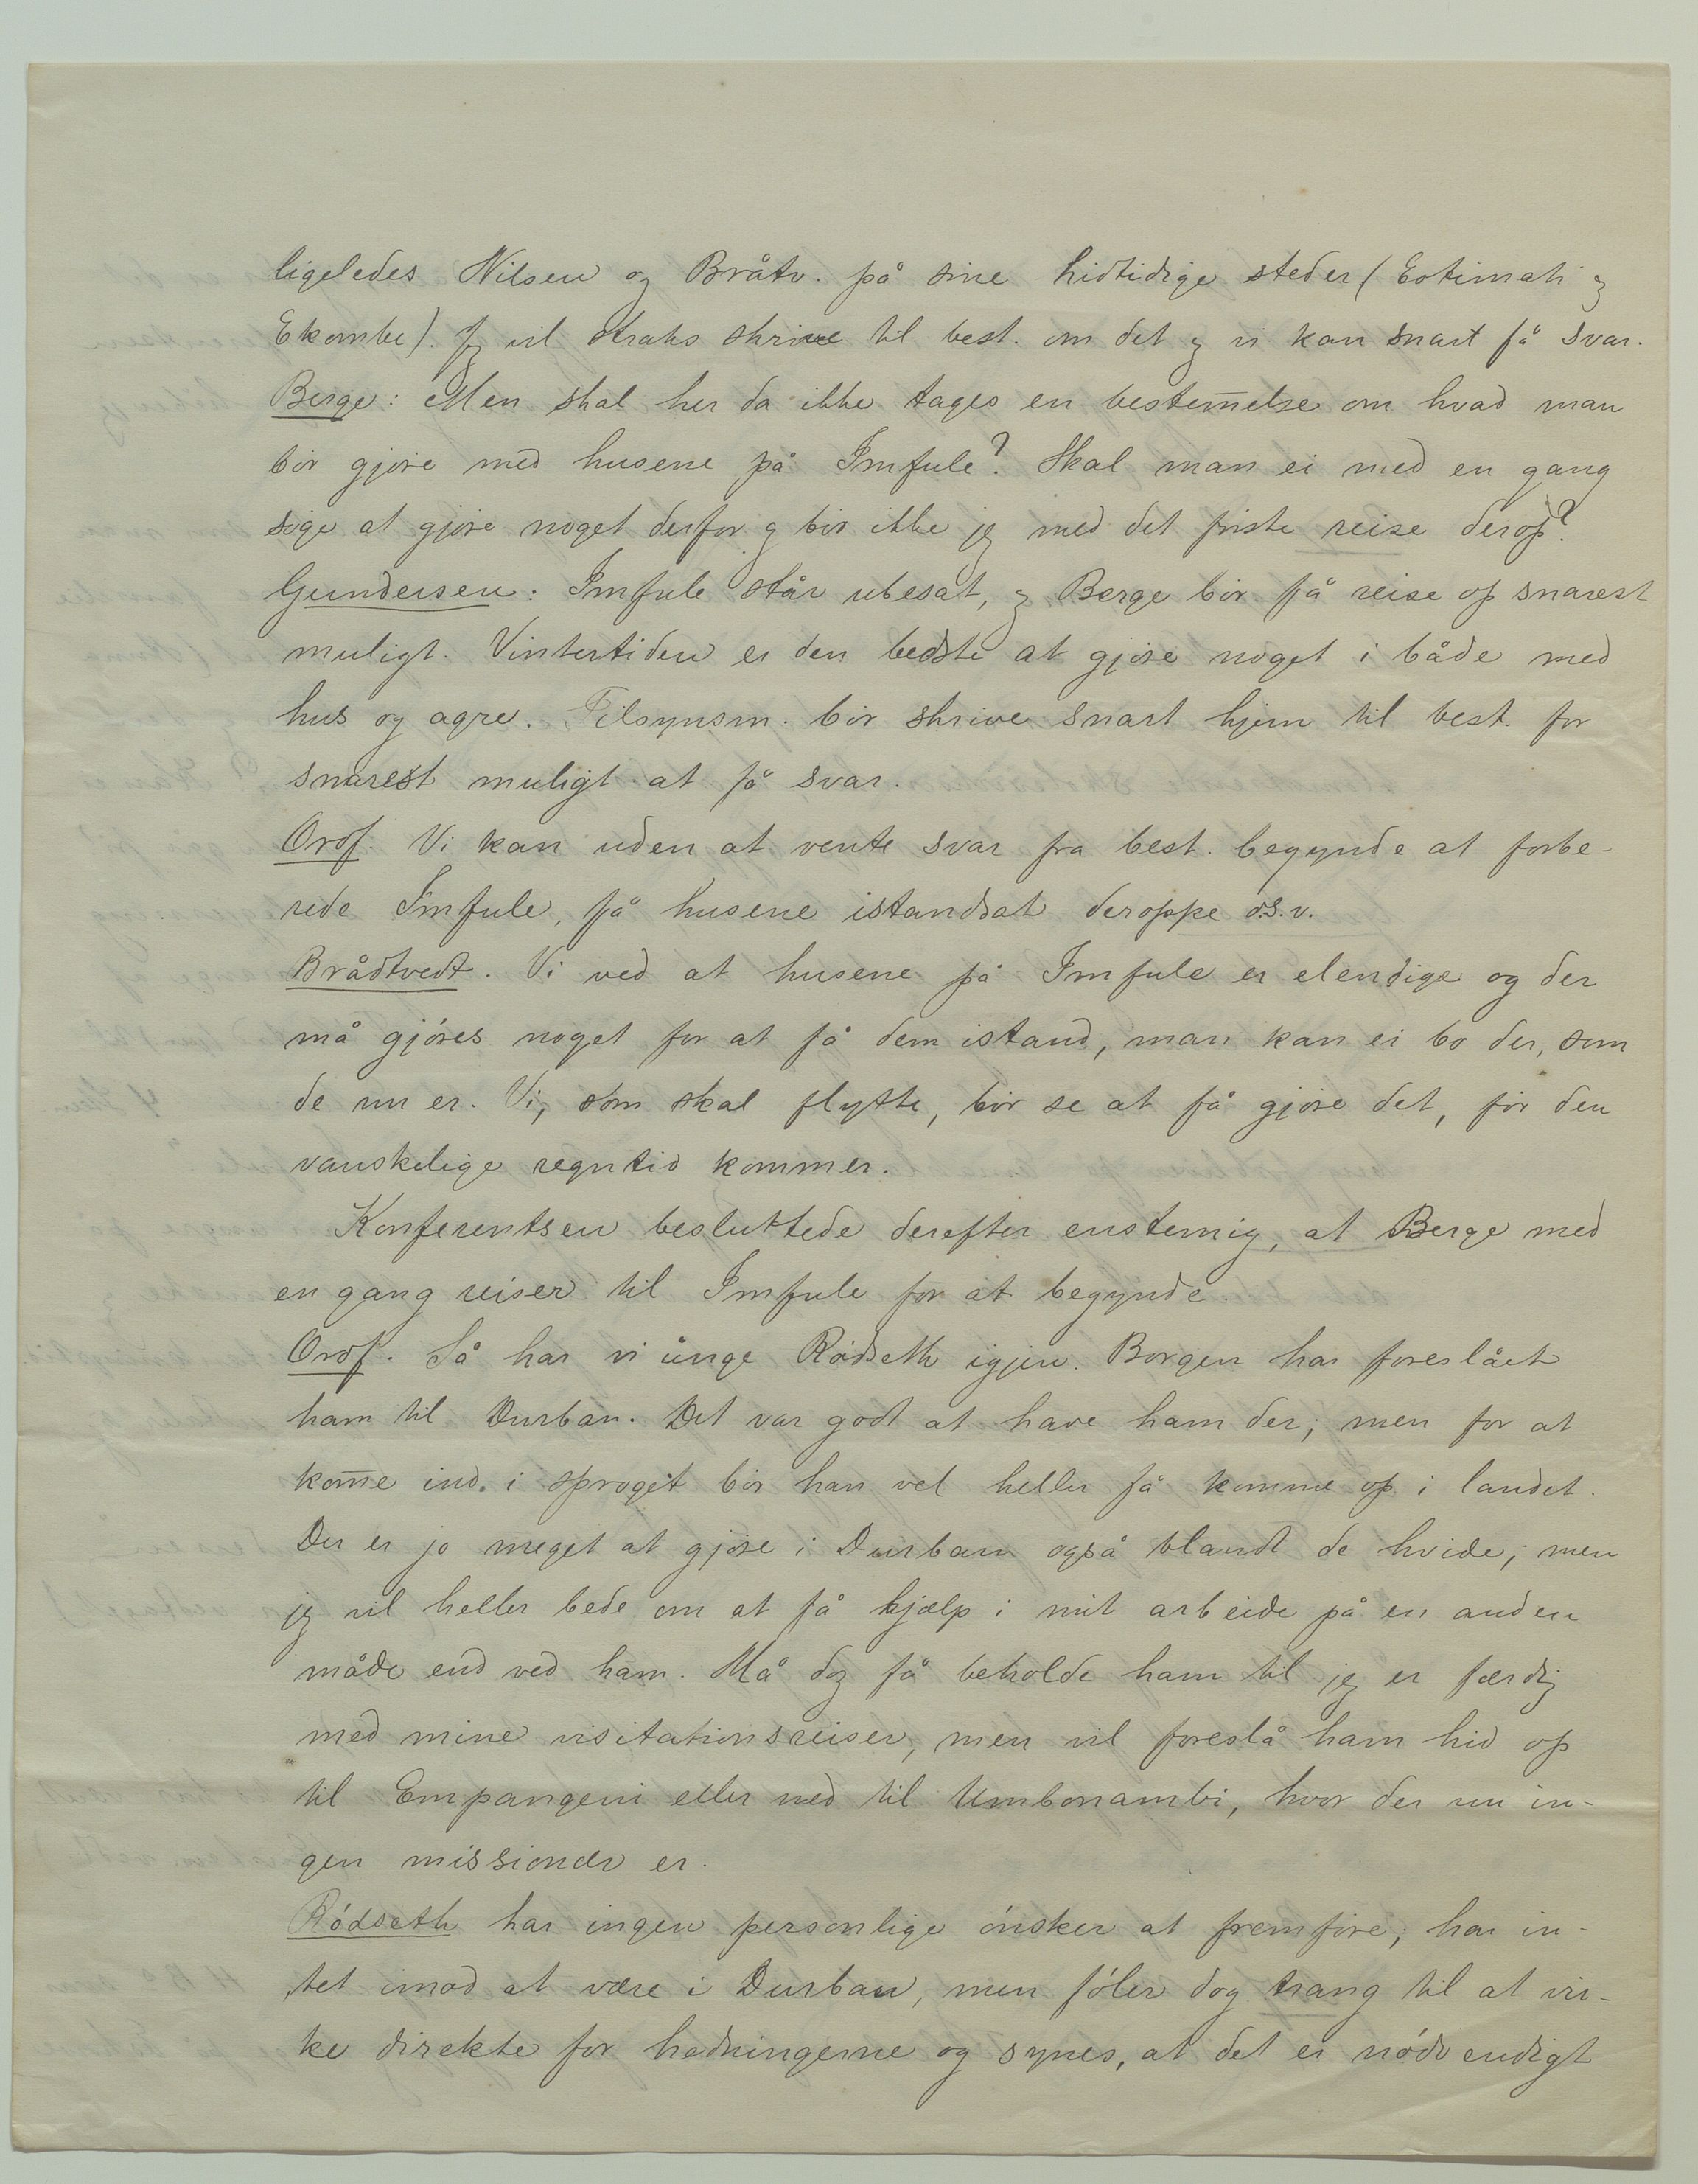 ligeledes Nilsen og Bråtv. på sine hidtidige steder (Eotimati og
Ekombe). Jeg vil straks skrive til best. om det og vi kan snart få svar.
Berge: Men skal her da ikke tages en bestem̅else om hvad man
bör gjöre med husene på Imfule? Skal man ei med en gang
söge at gjöre noget derfor og bör ikke jeg med det förste reise derop?
Gundersen: Imfule står ubesat, og Berge bör få reise op snarest
muligt. Vintertiden er den bedste at gjöre noget i både med
hus og agre. Tilsynsm. bör skrive snart hjem til best. for
snarest muligt at få svar.
Ordf. Vi kan uden at vente svar fra best. begynde at forbe-
rede Imfule, få husene istandsat deroppe o.s.v.
Brådtvedt. Vi ved at husene på Imfule er elendige og der
må gjöres noget for at få dem istand, man kan ei bo der, som
de nu er. Vi, som skal flytte, bör se at få gjöre det, för den
vanskelige regntid kommer.
Konferentsen besluttede derefter enstemig, at Berge med
en gang reiser til Imfule for at begynde.
Ordf. Så har vi unge Rödseth igjen. Borgen har foreslået
ham til Durban. Det var godt at have ham der; men for at
kom̅e ind i sproget bör han vel heller få komme op i landet.
Der er jo meget at gjöre i Durban også blandt de hvide; men
jeg vil heller bede om at få hjælp i mit arbeide på en anden
måde end ved ham. Må dog få beholde ham til jeg er færdig
med mine visitationsreiser, men vil foreslå ham hid op
til Empangeni eller ned til Umbonambi, hvor der nu in-
gen missionær er.
Rödseth har ingen personlige önsker at fremföre; har in-
tet imod at være i Durban, men föler dog trang til at vir-
ke direkte for hedningerne og synes, at det er nödvendigt